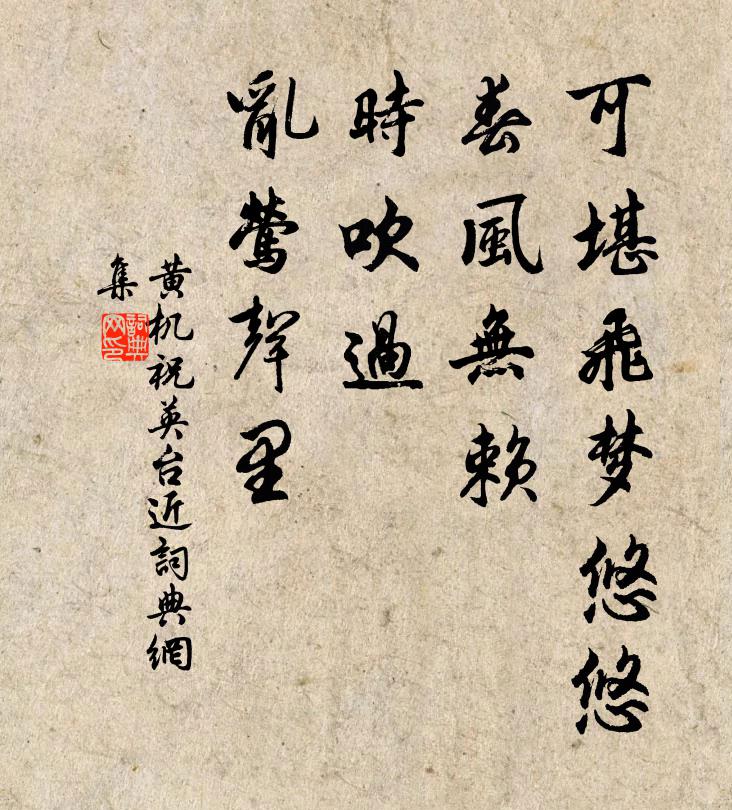 可堪飛梦悠悠
春風無赖
時吹過
亂莺聲里
黄机祝英台近詞典網
集
詞典
网印